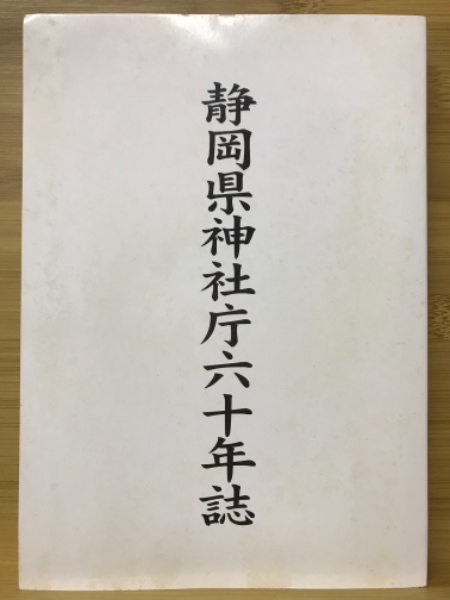 静岡県神社庁六十年誌